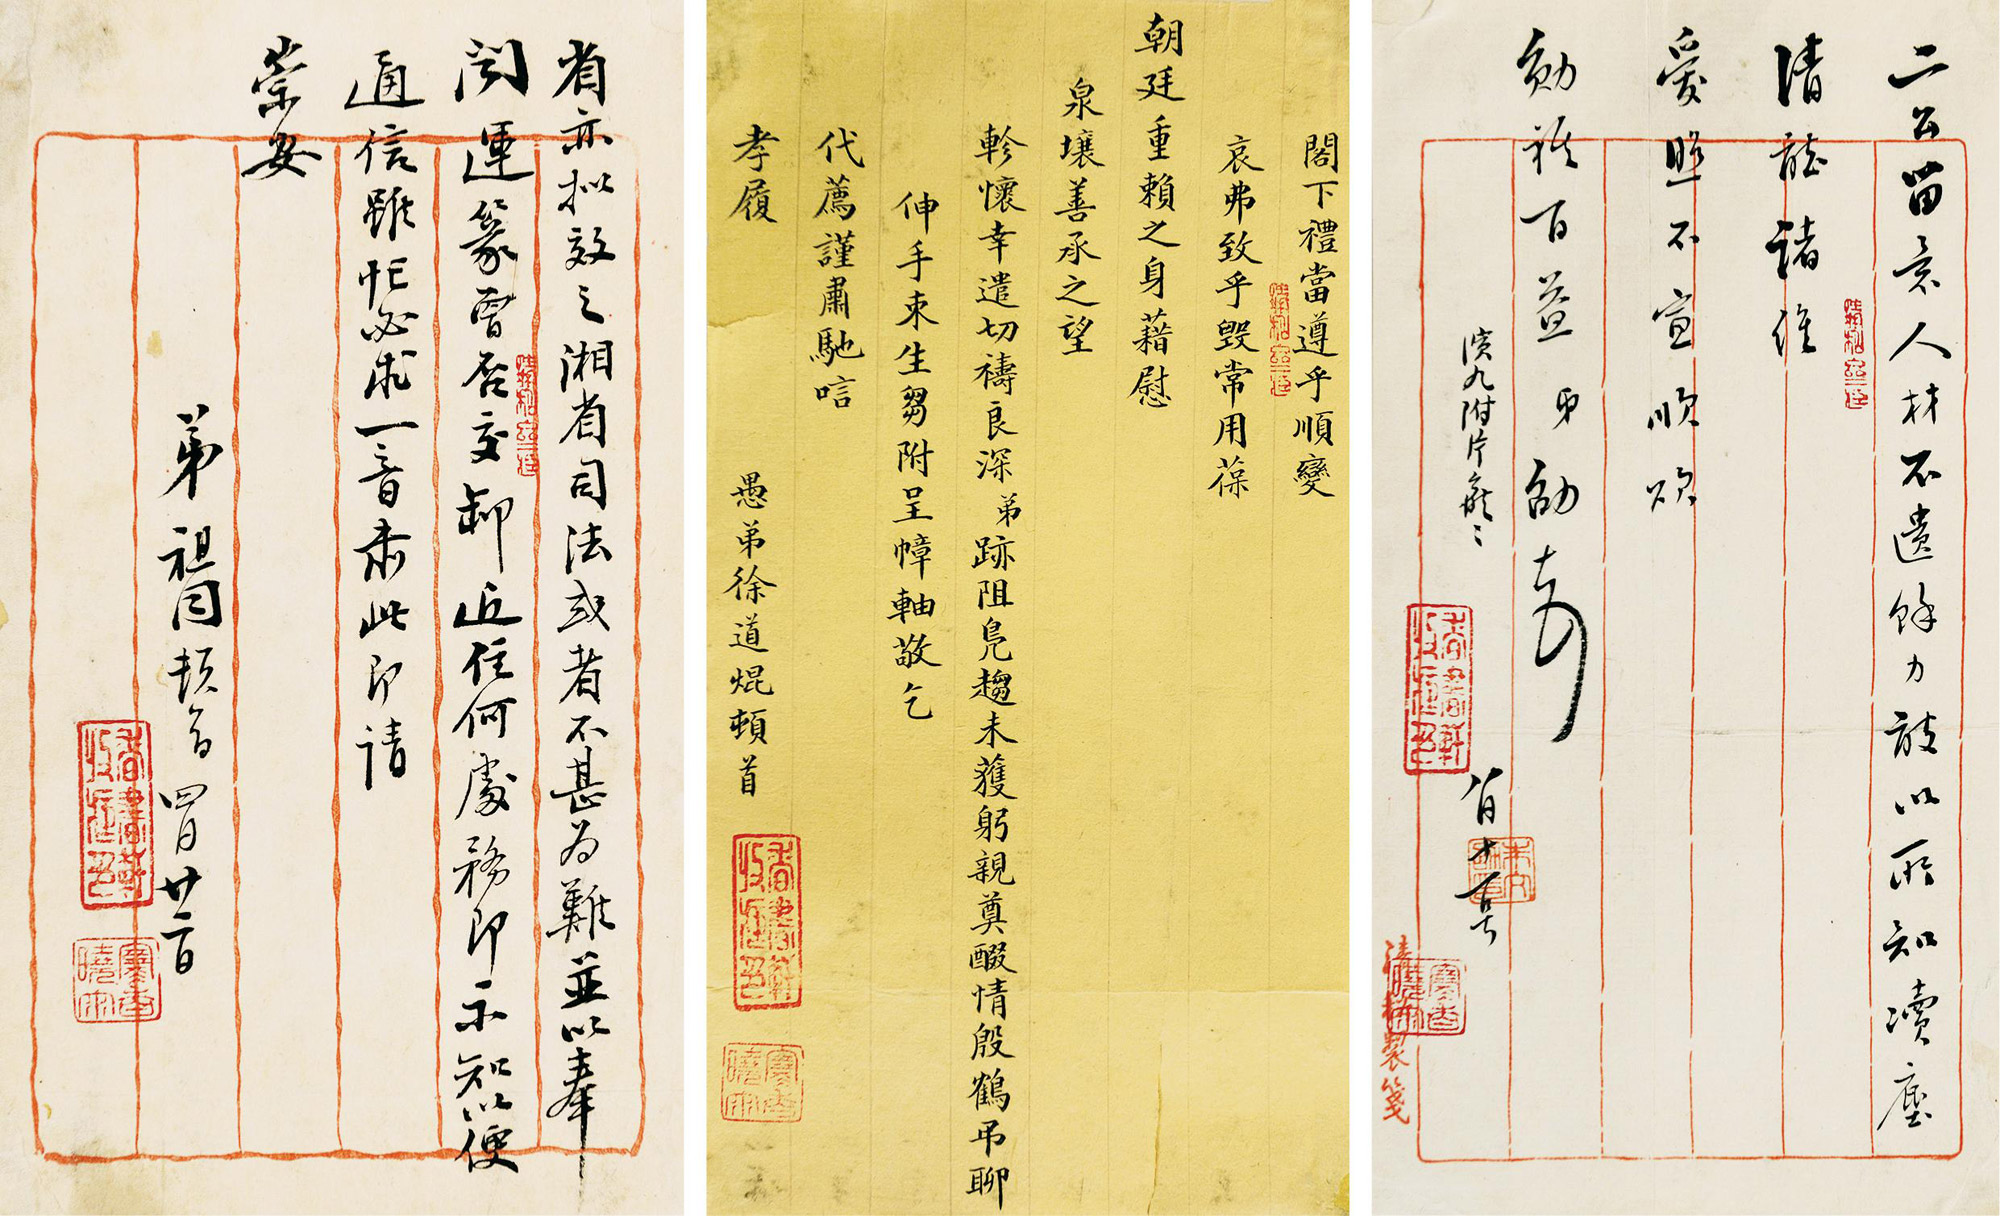 二公留意人材不遺餘力敢以所知瀆塵
清聽諸惟
愛照不宣順頌
勛祺百益弟
濱九附片
閣下禮當遵乎順變
哀弗致乎毀常用葆
朝廷重賴之身藉慰
泉壤善承之望
軫懷幸遣切禱良深弟跡阻凫趨未獲躬親奠醊情殷鶴弔聊
伸手束生芻附呈幛軸敬乞
代薦謹肅馳唁
孝履
愚弟徐道焜頓首
省亦擬效之湘省司法或者不甚為難並以奉
聞運篆曾否交卸近任何處務即示知以便
通信雖忙必求一音肅此即請
崇安
弟祖同頓首四月廿二日
清秘製箋